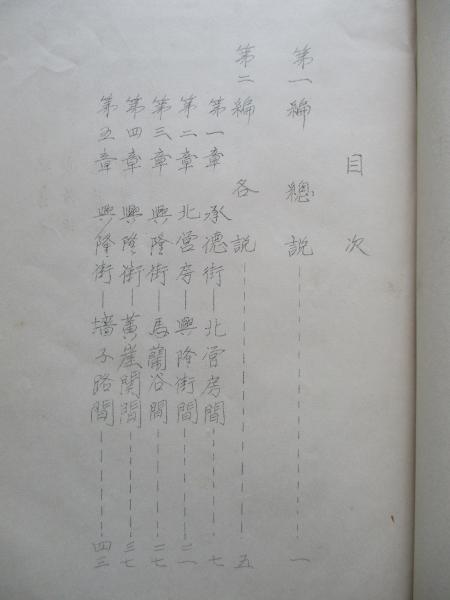 目次
第一編 總説------一
第二編 各説------五
第一章 承德街—北營房間------七
第二章 北營房—興隆街間------二一
第三章 興隆街—馬蘭谷間------二七
第四章 興隆街—黃崖関間------三七
第五章 興隆街—墻子路間------四三